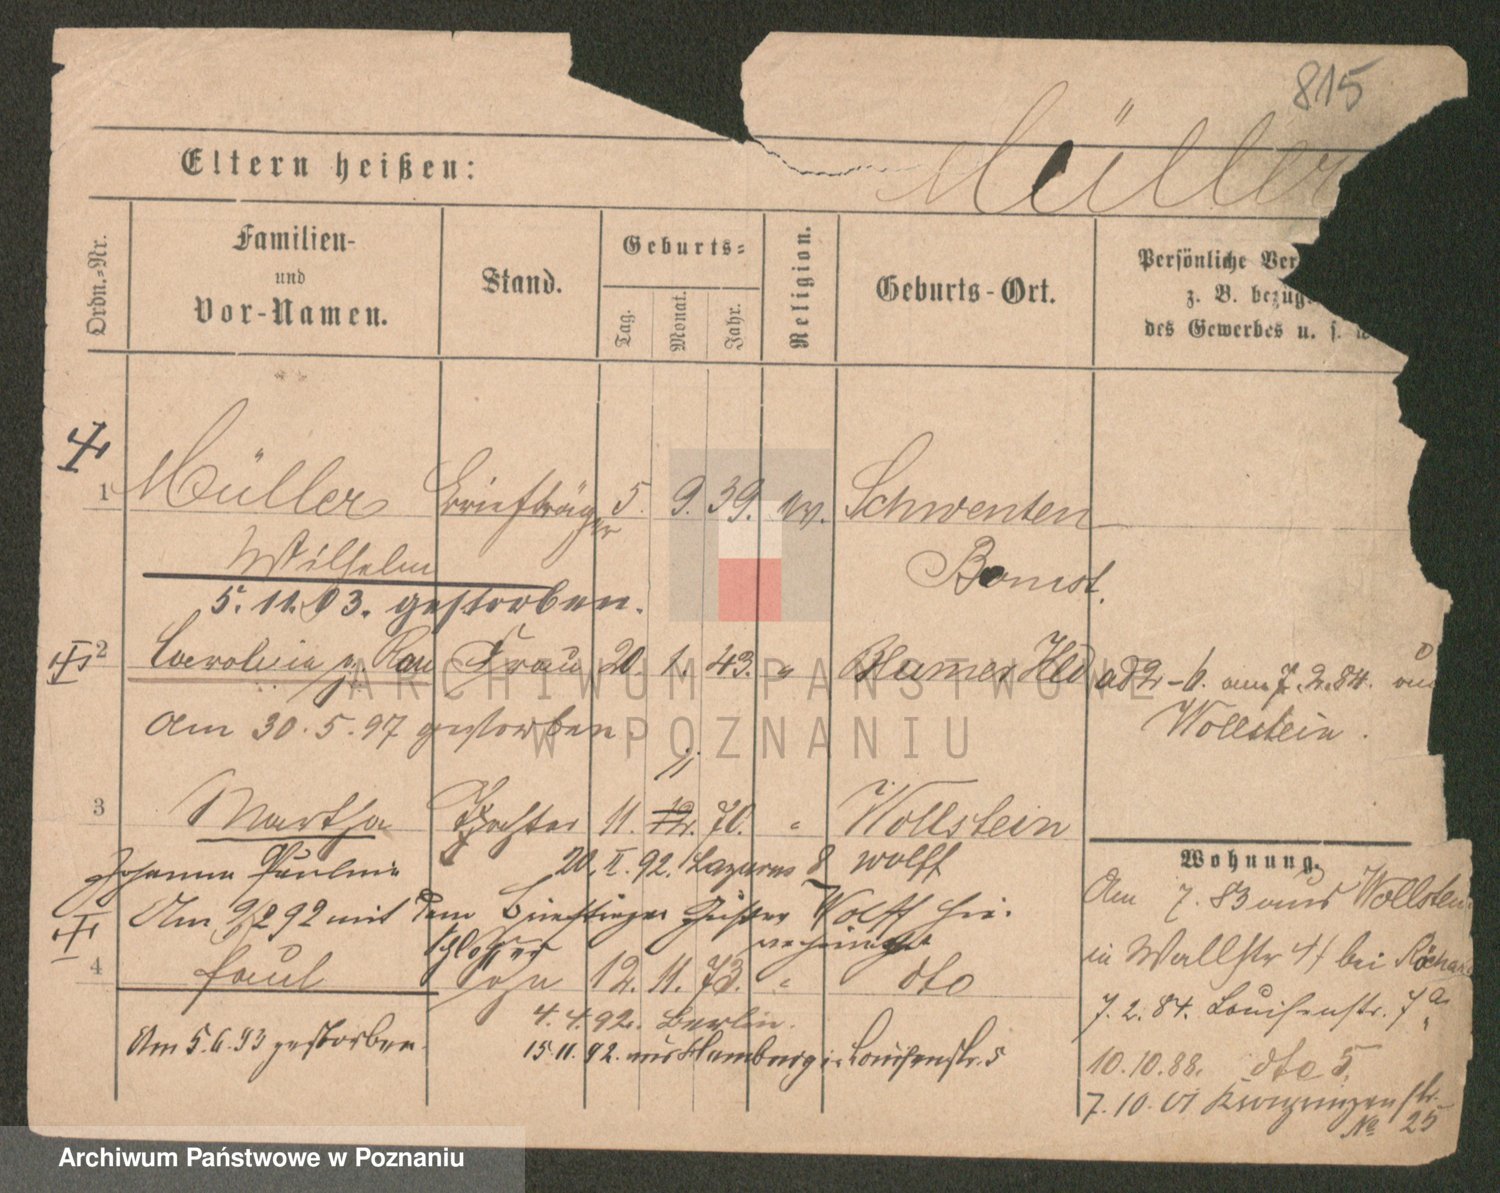 815
Müller
Eltern heißen:
Ordn.-Nr.
Familien-
und
Vor-Namen.
Stand.
Geburts-
Tag.
Monat.
Jahr.
Religion.
Geburts-Ort.
Persönliche Ver
z. B. bezüg
des Gewerbes u. s. w
1 Müller Briefträger 5. 9. 39. ev. Schwenten
Wilhelm Bomst.
5. 11. 03. gestorben.
2 Frau 20. 1. 43. "
am 7. 2. 84.
Wollstein.
Am 30. 5. 97 gestorben
11
3 Martha Tochter 11. 12. 70. " Wollstein
Johanna Pauline 20. II. 92. Lazarus 8 Wolff
Am 92 mit dem Wolff
4 Paul Sohn 12. 11. 73. " dto
4. 4. 92. Berlin.
Am 5. 6. 93 gestorben.
15. 11. 92. aus Hamburg Louisenstr. 5
Wohnung.
Am 7. 83 aus Wollstein
in Wallstr bei
7. 2. 84. Louisenstr. 7a
10. 10. 88. dto 5.
7. 10. 01
No 25
ARCHIWUM PAŃSTWOWE
W POZNANIU
Archiwum Państwowe w Poznaniu